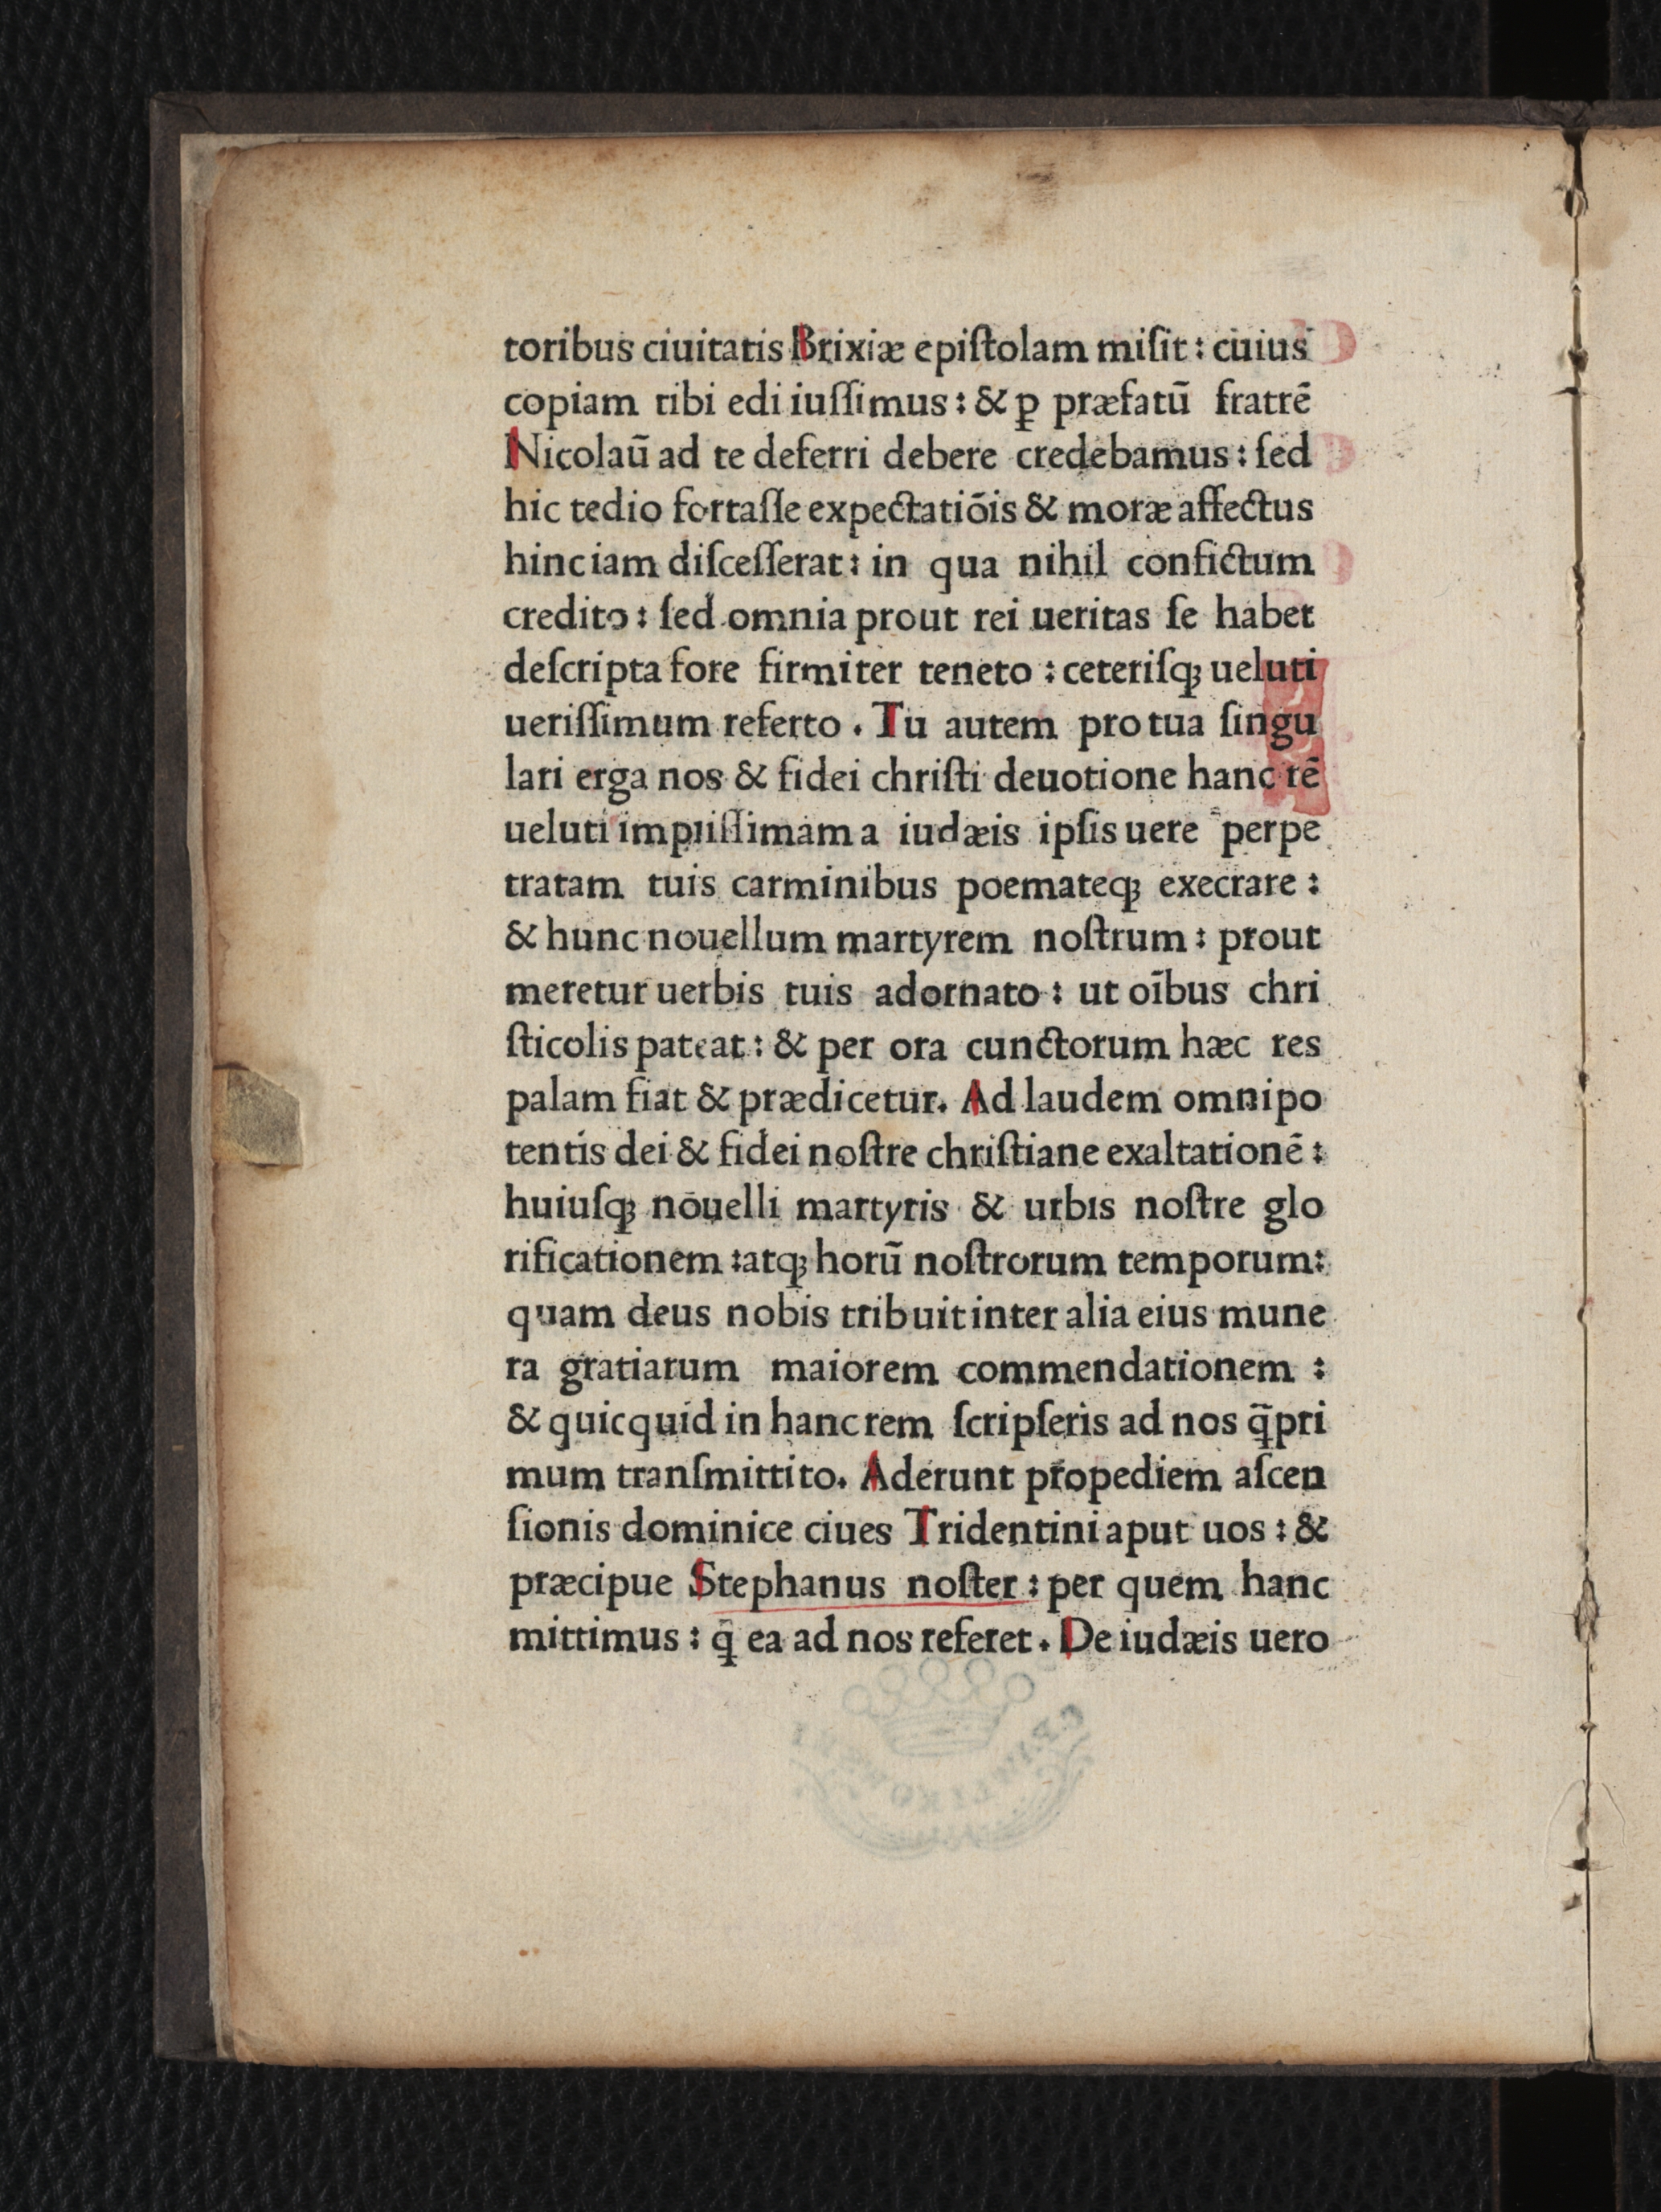 toribus ciuitatis Brixiæ epiſtolam miſit : cuius
copiam tibi edi iuſſimus : & ꝑ præfatū fratrē
Nicolaū ad te deferri debere credebamus : ſed
hic tedio fortaſſe expectatiōis & moræ affectus
hinc iam diſceſſerat : in qua nihil confictum
credito : ſed omnia prout rei ueritas ſe habet
deſcripta fore firmiter teneto : ceteriſqꝫ ueluti
ueriſſimum referto . Tu autem pro tua ſingu
lari erga nos & fidei chriſti deuotione hanc rē
ueluti impiiſſimam a iudæis ipſis uere perpe
tratam tuis carminibus poemateqꝫ execrare :
& hunc nouellum martyrem noſtrum : prout
meretur uerbis tuis adornato : ut oībus chri
ſticolis pateat : & per ora cunctorum hæc res
palam fiat & prædicetur. Ad laudem omnipo
tentis dei & fidei noſtre chriſtiane exaltationē :
huiuſqꝫ nouelli martyris & urbis noſtre glo
rificationem : atqꝫ horū noſtrorum temporum :
quam deus nobis tribuit inter alia eius mune
ra gratiarum maiorem commendationem :
& quicquid in hanc rem ſcripſeris ad nos q̄pri
mum tranſmittito. Aderunt propediem aſcen
ſionis dominice ciues Tridentini aput uos : &
præcipue Stephanus noſter : per quem hanc
mittimus : q̄ ea ad nos referet . De iudæis uero